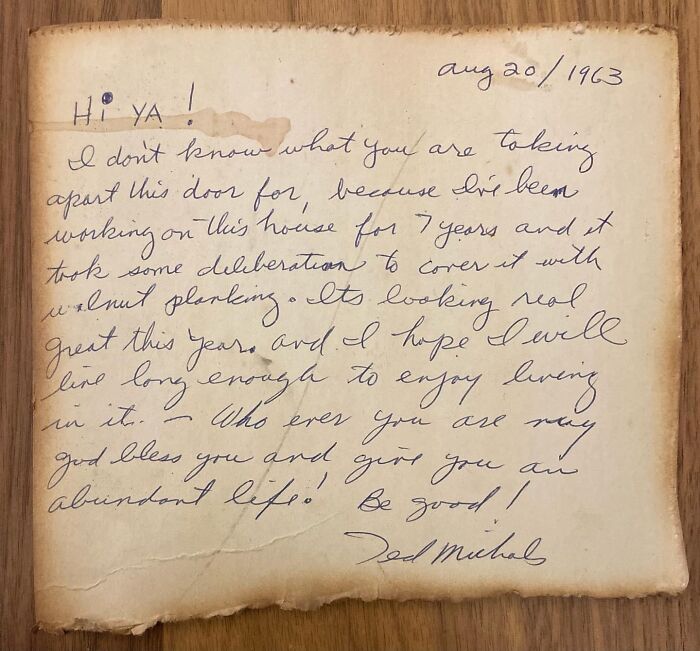 aug 20/1963
Hi YA!
I don't know what you are taking
apart this door for, because I've been
working on this house for 7 years and it
took some deliberation to cover it with
walnut planking. Its looking real
great this year. and I hope I will
live long enough to enjoy living
in it. - Who ever you are may
god bless you and give you an
abundant life! Be good!
Ted Michals